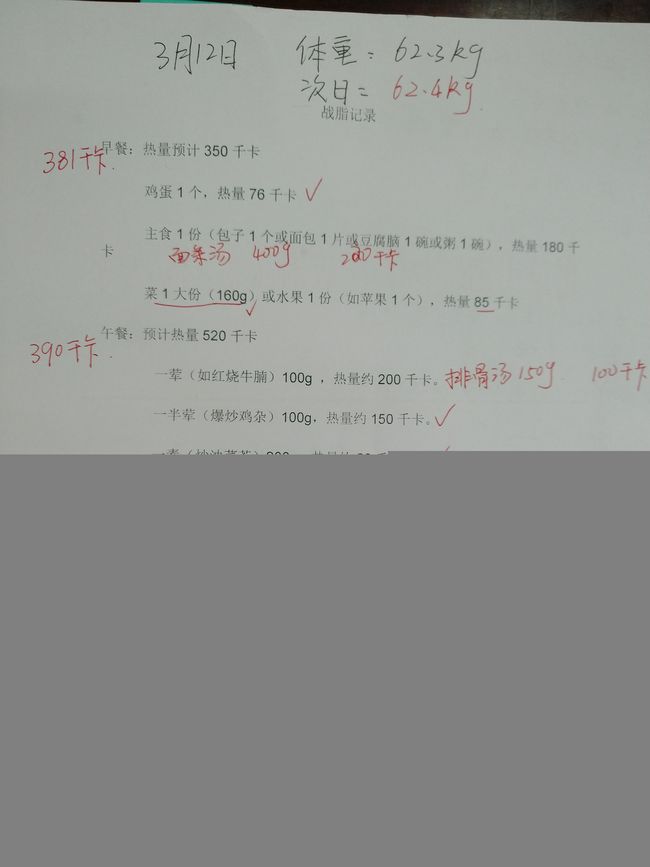 3月12日 体重：62.3kg
次日＝ 62.4kg
战脂记录
381千卡. 早餐：热量预计 350 千卡
鸡蛋 1 个，热量 76 千卡 ✓
主食 1 份（包子 1 个或面包 1 片或豆腐脑 1 碗或粥 1 碗），热量 180 千
卡 面条汤 400g 200千卡
菜 1 大份（160g）或水果 1 份（如苹果 1 个），热量 85 千卡
390千卡. 午餐：预计热量 520 千卡
一荤（如红烧牛腩）100g ，热量约 200 千卡。排骨汤150g 100千卡
一半荤（爆炒鸡杂）100g，热量约 150 千卡。✓